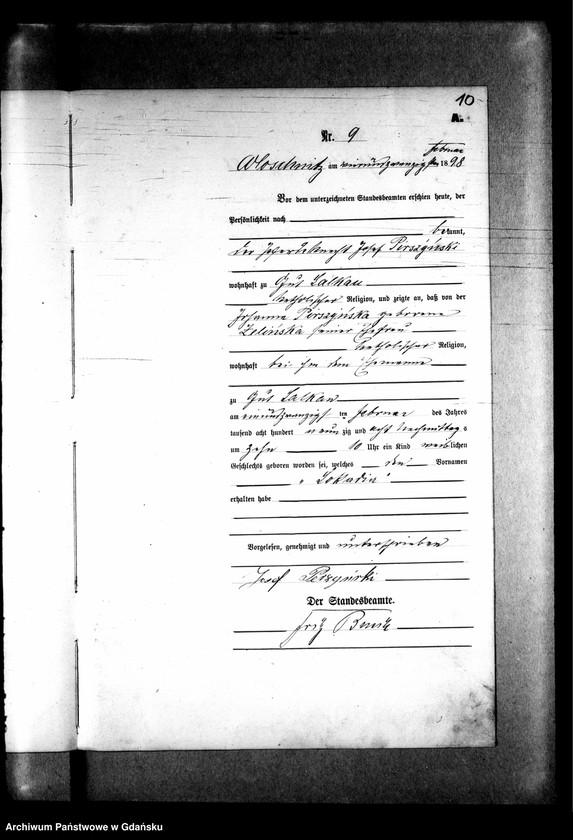 10
A.
Nr. 9
Februar
am einundzwanzigsten 1898
Vor dem unterzeichneten Standesbeamten erschien heute, der
Persönlichkeit nach
bekannt,
der Josef Perszyński
wohnhaft zu Gut Lalkau
katholischer Religion, und zeigte an, daß von der
Johanna Perszyńska geborene
Zelińska seiner Ehefrau
katholischer Religion,
wohnhaft bei ihm dem Ehemanne
zu Gut Lalkau
am einundzwanzigsten Februar des Jahres
tausend acht hundert neunzig und acht Nachmittags
um zehn 10 Uhr ein Kind weiblichen
Geschlechts geboren worden sei, welches den Vornamen
erhalten habe
Vorgelesen, genehmigt und unterschrieben
Josef Perszyński
Der Standesbeamte.
Archiwum Państwowe w Gdańsku